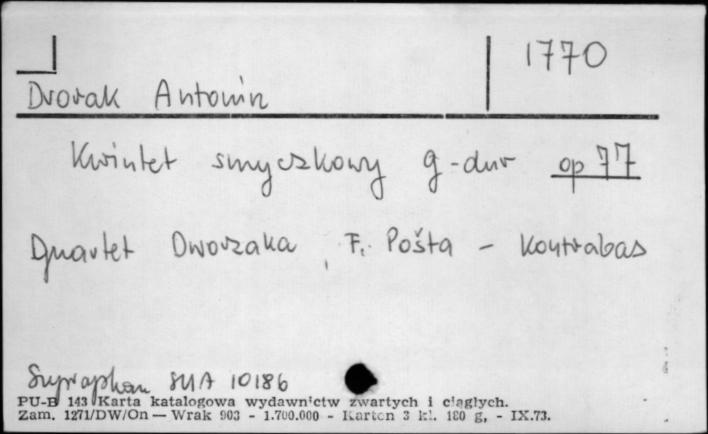 1770
Dvorak Antonin
Kwintet smyczkowy g-dur op 77
Quartet Dworzaka, F. Pošta - Kontrabas
Supraphon SUA 10186
PU-B 143 Karta katalogowa wydawnictw zwartych i ciągłych.
Zam. 1271/DW/On — Wrak 903 - 1.700.000 - Karton 3 kl. 180 g, - IX.73.